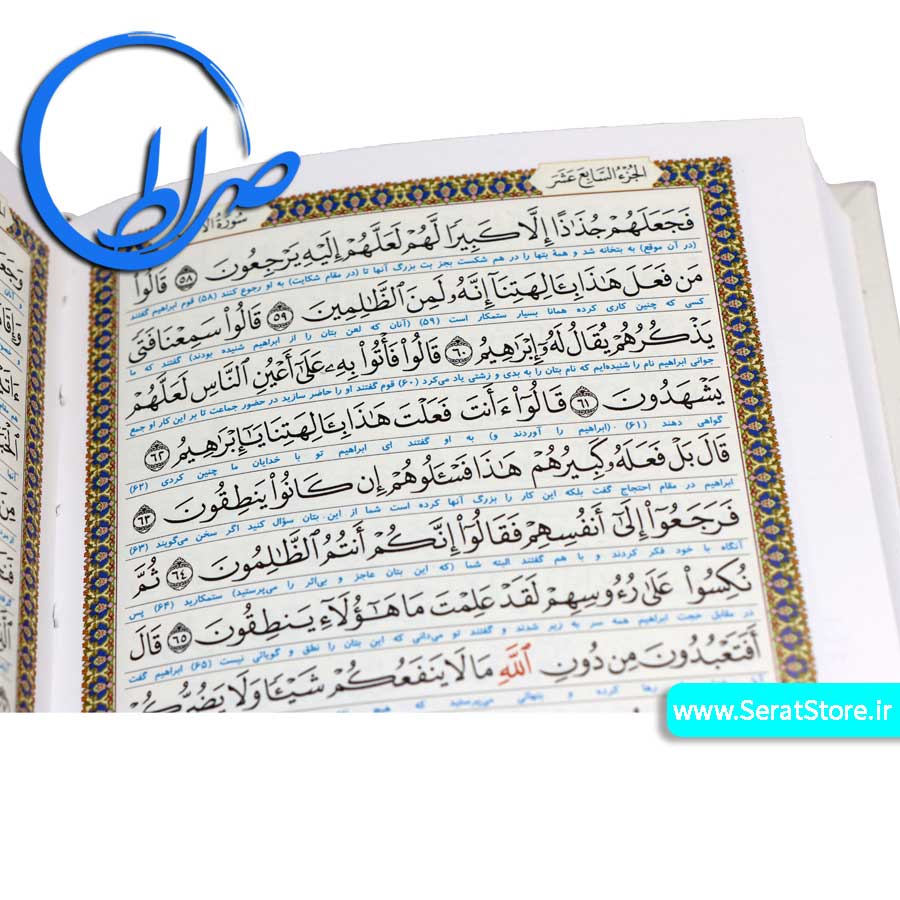 صراط
الجزء السابع عشر
سورة
فَجَعَلَهُمْ جُذَٰذًا إِلَّا كَبِيرًا لَّهُمْ لَعَلَّهُمْ إِلَيْهِ يَرْجِعُونَ ﴿٥٨﴾ قَالُوا۟
(در آن موقع) به بتخانه شد و همهٔ بتها را در هم شکست بجز بت بزرگ آنها تا (در مقام شکایت) به او رجوع کنند (۵۸) قوم ابراهیم گفتند
مَن فَعَلَ هَٰذَا بِـَٔالِهَتِنَآ إِنَّهُۥ لَمِنَ ٱلظَّٰلِمِينَ ﴿٥٩﴾ قَالُوا۟ سَمِعْنَا فَتًى
کسی که چنین کاری کرده همانا بسیار ستمکار است (۵۹) (آنان که لعن بتان را از ابراهیم شنیده بودند) گفتند که ما
يَذْكُرُهُمْ يُقَالُ لَهُۥٓ إِبْرَٰهِيمُ ﴿٦٠﴾ قَالُوا۟ فَأْتُوا۟ بِهِۦ عَلَىٰٓ أَعْيُنِ ٱلنَّاسِ لَعَلَّهُمْ
جوانی ابراهیم نام را شنیده‌ایم که نام بتان را به بدی و زشتی یاد می‌کرد (۶۰) قوم گفتند او را حاضر سازید در حضور جماعت تا بر این کار او جمع
يَشْهَدُونَ ﴿٦١﴾ قَالُوٓا۟ ءَأَنتَ فَعَلْتَ هَٰذَا بِـَٔالِهَتِنَا يَٰٓإِبْرَٰهِيمُ ﴿٦٢﴾
گواهی دهند (۶۱) (ابراهیم را آوردند و) به او گفتند ای ابراهیم تو با خدایان ما چنین کردی (۶۲)
قَالَ بَلْ فَعَلَهُۥ كَبِيرُهُمْ هَٰذَا فَسْـَٔلُوهُمْ إِن كَانُوا۟ يَنطِقُونَ ﴿٦٣﴾
ابراهیم در مقام احتجاج گفت بلکه این کار را بزرگ آنها کرده است شما از این بتان سؤال کنید اگر سخن می‌گویند (۶۳)
فَرَجَعُوٓا۟ إِلَىٰٓ أَنفُسِهِمْ فَقَالُوٓا۟ إِنَّكُمْ أَنتُمُ ٱلظَّٰلِمُونَ ﴿٦٤﴾ ثُمَّ
آنگاه با خود فکر کردند و با هم گفتند البته شما (که این بتان عاجز و بی‌اثر را می‌پرستید) ستمکارید (۶۴) پس
نُكِسُوا۟ عَلَىٰ رُءُوسِهِمْ لَقَدْ عَلِمْتَ مَا هَٰٓؤُلَآءِ يَنطِقُونَ ﴿٦٥﴾ قَالَ
در مقابل حجت ابراهیم همه سر به زیر شدند و گفتند تو می‌دانی که این بتان را نطق و گویائی نیست (۶۵) ابراهیم گفت
أَفَتَعْبُدُونَ مِن دُونِ ٱللَّهِ مَا لَا يَنفَعُكُمْ شَيْـًٔا وَلَا يَضُرُّكُمْ
www.SeratStore.ir